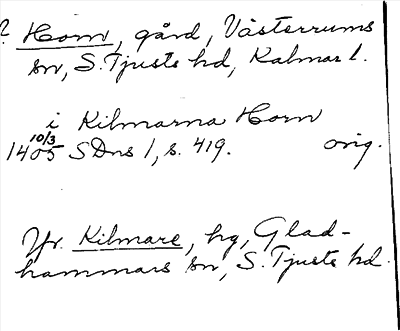 ? Horn, gård, Västerrums
sn, S. Tjusts hd, Kalmar l.
i Kilmarna Horn
10/3
1405 SDns 1, s. 419. orig.
Jfr. Kilmare, hg, Glad-
hammars sn, S. Tjusts hd.